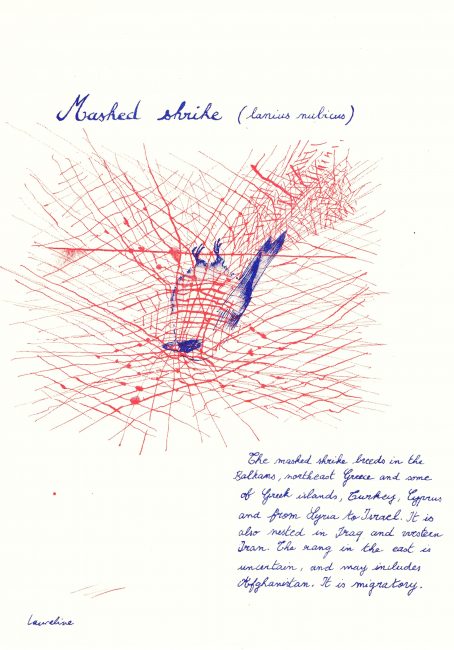 Masked shrike (lanius nubicus)
The masked shrike breeds in the
Balkans, northeast Greece and some
of Greek islands, Turkey, Cyprus
and from Syria to Israel. It is
also nested in Iraq and western
Iran. The rang in the east is
uncertain, and may includes
Afghanistan. It is migratory.
Laureline